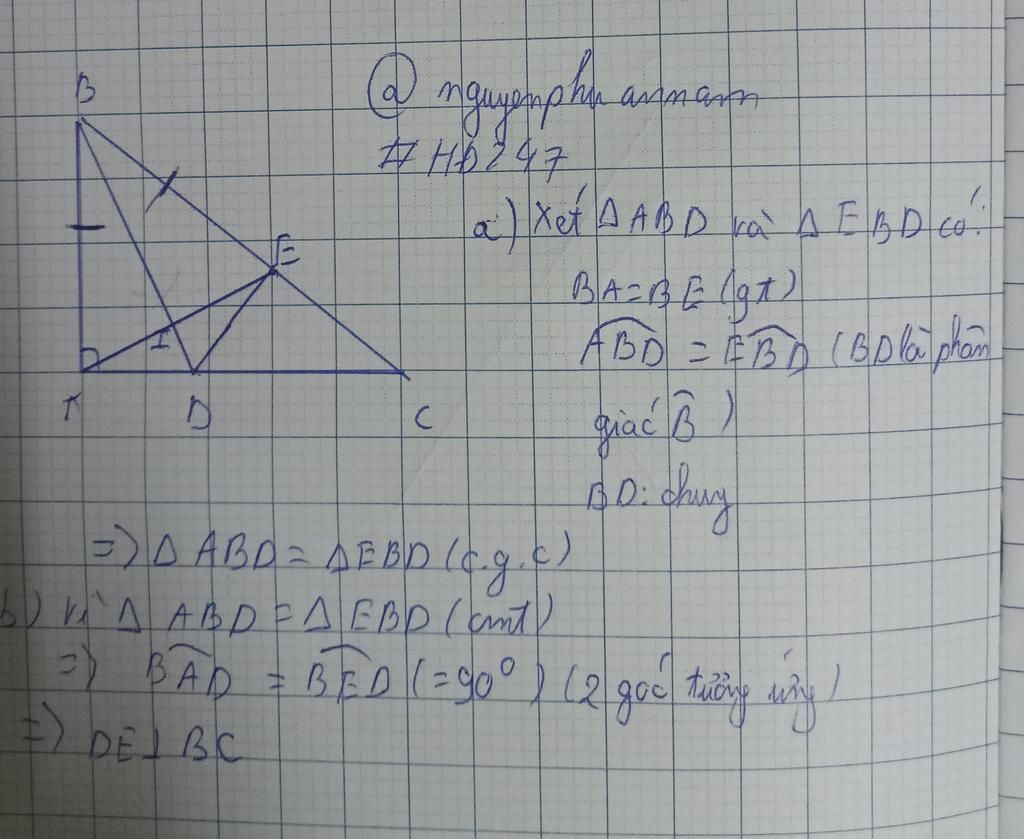 @ nguyenphu annam
# HD247
B
E
I
A
D
C
a) Xét Δ ABD và Δ EBD có:
BA = BE (gt)
ABD = EBD (BD là phân
giác B̂ )
BD: chung
=> Δ ABD = Δ EBD (c.g.c)
b) vì Δ ABD = Δ EBD (cmt)
=> BAD = BED (= 90°) (2 góc tương ứng)
=> DE ⊥ BC